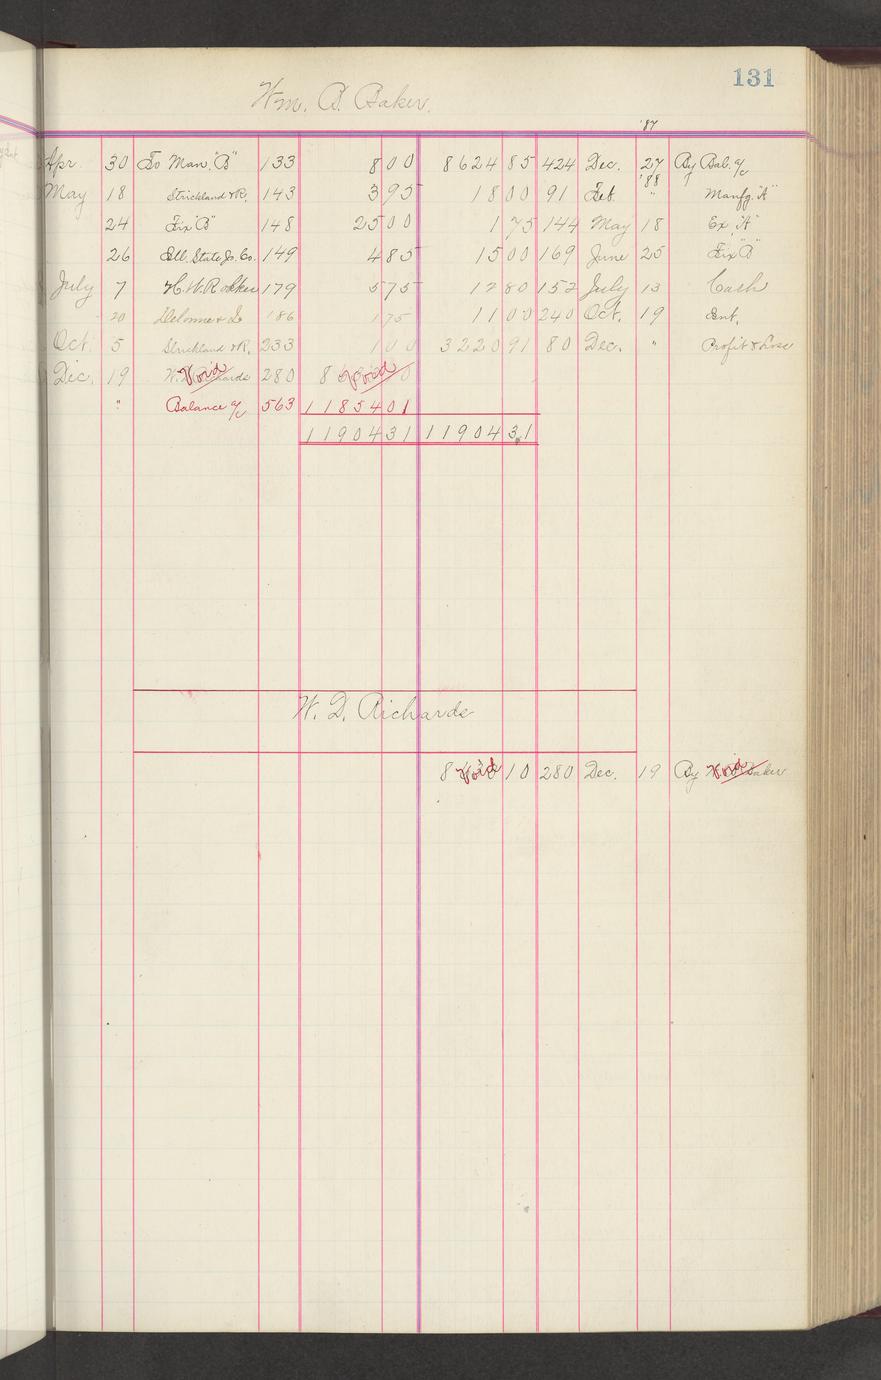 131
Wm. B. Baker.
'87
Apr. 30 To Man. "B" 133 8 00 8624 85 424 Dec. 27 By Bal. a/c
May 18 Strickland & R. 143 3 95 18 00 91 Feb. '88 " Manfg. "A"
24 Fix "B" 148 25 00 1 75 144 May 18 Ex. "A"
26 Ill. State J. Co. 149 4 85 15 00 169 June 25 Fix "B"
July 7 H. W. Rokker 179 5 75 12 80 152 July 13 Cash
20 186 1 75 11 00 240 Oct. 19 Ent.
Oct. 5 Strickland & R. 233 1 00 3220 91 80 Dec. " Profit & Loss
Dec. 19 Void 280 8 Void 0
" Balance a/c 563 11854 01
11904 31 11904 31
W. D. Richards
8 Void 10 280 Dec. 19 By Void Baker